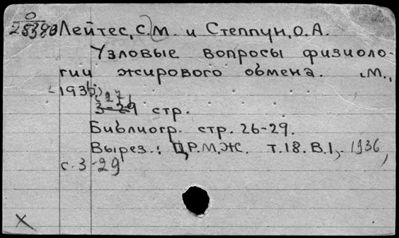 Лейтес, С.М. и Степпун, О.А.
Узловые вопросы физиоло-
гии жирового обмена. М.,
1936,
27
3-29 стр.
Библиогр. стр. 26-29.
Вырез.: Ц.Р.М.Ж. т.18. В.1, 1936,
с. 3-29